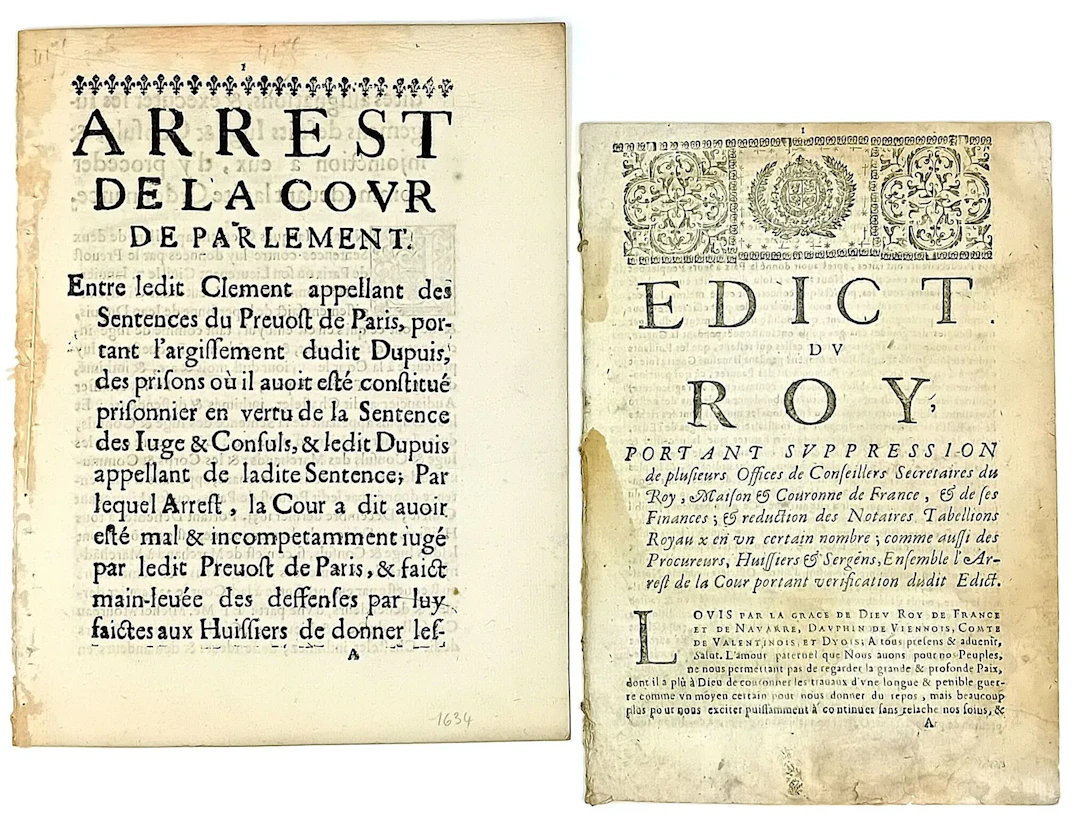 1
ARREST
DE LA COVR
DE PARLEMENT.
Entre ledit Clement appellant des
Sentences du Preuoſt de Paris, por-
tant l'argiſſement dudit Dupuis,
des priſons où il auoit eſté conſtitué
priſonnier en vertu de la Sentence
des Iuge & Conſuls, & ledit Dupuis
appellant de ladite Sentence; Par
lequel Arreſt, la Cour a dit auoir
eſté mal & incompetamment iugé
par ledit Preuoſt de Paris, & faict
main-leuée des deffenſes par luy
faictes aux Huiſſiers de donner leſ-
A
1634
1
EDICT
DV
ROY,
PORTANT SVPPRESSION
de pluſieurs Offices de Conſeillers Secretaires du
Roy, Maiſon & Couronne de France, & de ſes
Finances; & reduction des Notaires Tabellions
Royaux en vn certain nombre; comme auſſi des
Procureurs, Huiſſiers & Sergens, Enſemble l'Ar-
reſt de la Cour portant verification dudit Edict.
LOVIS PAR LA GRACE DE DIEV ROY DE FRANCE
ET DE NAVARRE, DAVPHIN DE VIENNOIS, COMTE
DE VALENTINOIS ET DYOIS; A tous preſens & aduenir,
Salut. L'amour paternel que Nous auons pour nos Peuples,
ne nous permettant pas de regarder la grande & profonde Paix,
dont il a plû à Dieu de couronner les trauaux d'vne longue & penible guer-
re comme vn moyen certain pour nous donner du repos, mais beaucoup
plus pour nous exciter puiſſamment à continuer ſans relache nos ſoins, &
A